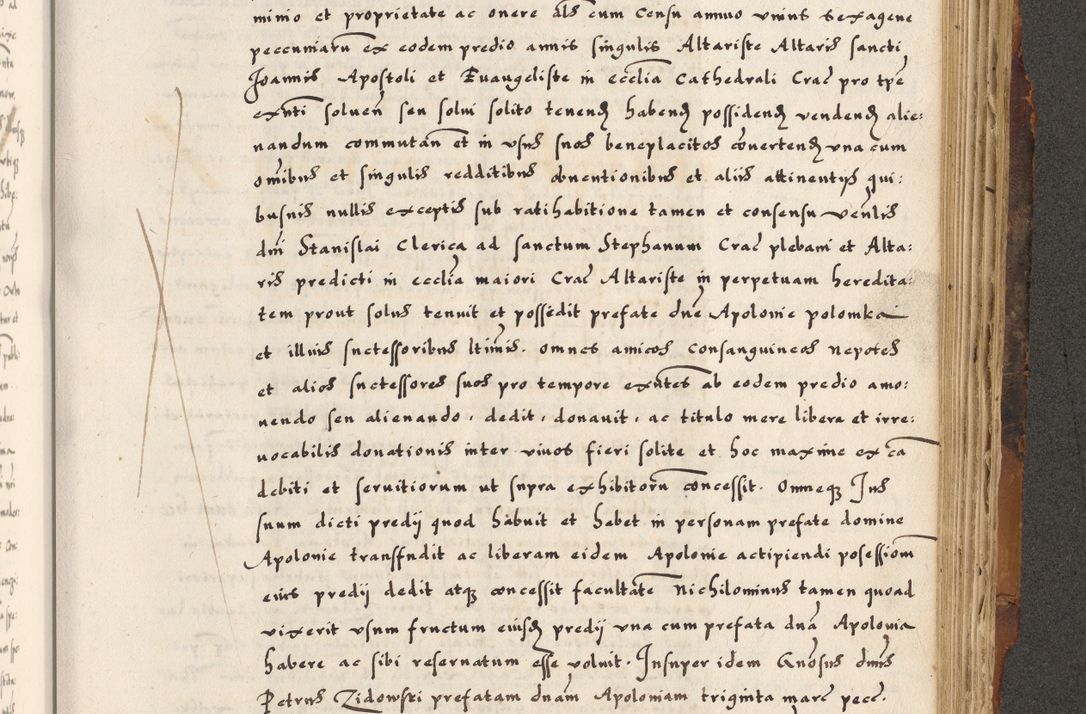 minio et proprietate ac onere als cum censu annuo unius sexagene
peccuniaru ex eodem predio annis singulis Altariste Altaris sancti
Joannis Apostoli et Euangeliste in ecclia Cathedrali Crac pro tpe
exnti soluen seu solui solito tenend habend possidend vendend alie:
nandum commutan et in vsus suos beneplacitos conuertend una cum
omibus et singulis redditibus obuentionibus et aliis attinentijs qui:
busuis nullis exceptis sub ratihabitione tamen et consensu venlis
dni Stanislai Clerica ad sanctum Stephanum Crac plebani et Alta:
ris predicti in ecclia maiori Crac Altariste in perpetuam heredita:
tem prout solus tenuit et possedit prefate dne Apolonie polomka
et illius suctessoribus ltimis. omnes amicos consanguineos nepotes
et alios suctessores suos pro tempore exntes ab eodem predio amo:
uendo seu alienando, dedit, donauit, ac titulo mere libere et irre:
uocabilis donationis inter viuos fieri solite et hoc maxime ex ca
debiti et seruitiorum ut supra exhibitoru concessit. Omneq Jus
suum dicti predij quod habuit et habet in personam prefate domine
Apolonie transfudit ac liberam eidem Apolonie actipiendi posessiom
eius predij dedit atq concessit facultate Nichilominus tamen quoad
vixerit vsum fructum eiusd predij una cum prefata dna Apolonia
habere ac sibi reseruatum esse voluit. Insuper idem Gnosus dnus
Petrus Zidowski prefatam dnam Apoloniam triginta marc pecc.